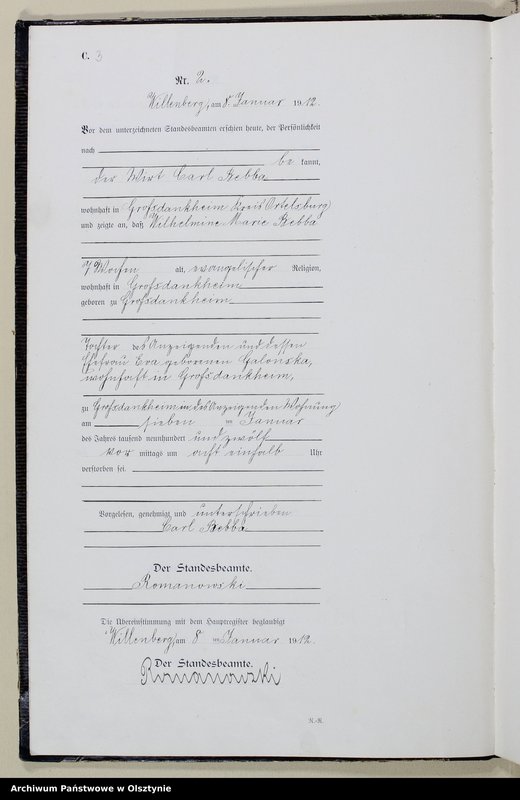 C. 3
Nr. 2.
Willenberg, am 8. Januar 1912.
Vor dem unterzeichneten Standesbeamten erschien heute, der Persönlichkeit
nach
be kannt,
der Wirt Carl Rebba
wohnhaft in Großdankheim Kreis Ortelsburg
und zeigte an, daß Wilhelmine Marie Rebba
7 Wochen alt, evangelischer Religion,
wohnhaft in Großdankheim
geboren zu Großdankheim
Tochter des Anzeigenden und dessen
Ehefrau Eva geborenen Galonska,
wohnhaft in Großdankheim,
zu Großdankheim in des Anzeigenden Wohnung
am sieben ten Januar
des Jahres tausend neunhundert und zwölf
vor mittags um acht einhalb Uhr
verstorben sei.
Vorgelesen, genehmigt und unterschrieben
Carl Rebba
Der Standesbeamte.
Romanowski
Die Übereinstimmung mit dem Hauptregister beglaubigt
Willenberg, am 8 ten Januar 1912.
Der Standesbeamte.
Romanowski
R.-R.
Archiwum Państwowe w Olsztynie